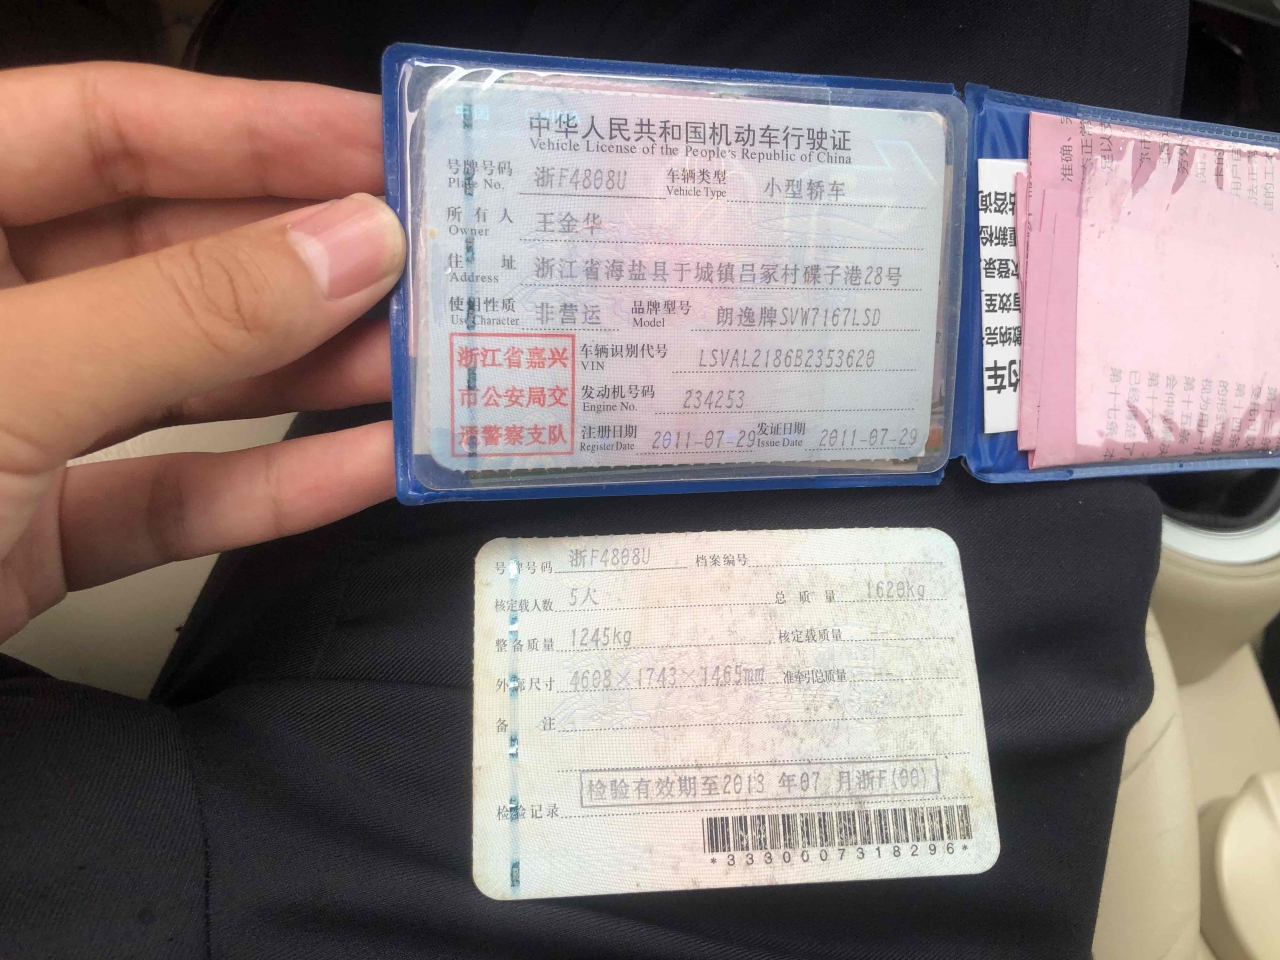 中华人民共和国机动车行驶证
Vehicle License of the People's Republic of China
号牌号码 浙F4808U 车辆类型 小型轿车
Plate No. Vehicle Type
所有人 王金华
Owner
住址 浙江省海盐县于城镇吕家村碟子港28号
Address
使用性质 非营运 品牌型号 朗逸牌SVW7167LSD
Use Character Model
浙江省嘉兴
市公安局交
通警察支队
车辆识别代号 LSVAL2186B2353620
VIN
发动机号码 234253
Engine No.
注册日期 2011-07-29 发证日期 2011-07-29
Register Date Issue Date
号牌号码 浙F4808U 档案编号
核定载人数 5人 总质量 1620kg
整备质量 1245kg 核定载质量 --
外廓尺寸 4608×1743×1465mm 准牵引总质量 --
备注
检验有效期至2013年07月浙F(00)
检验记录
*3330007318296*